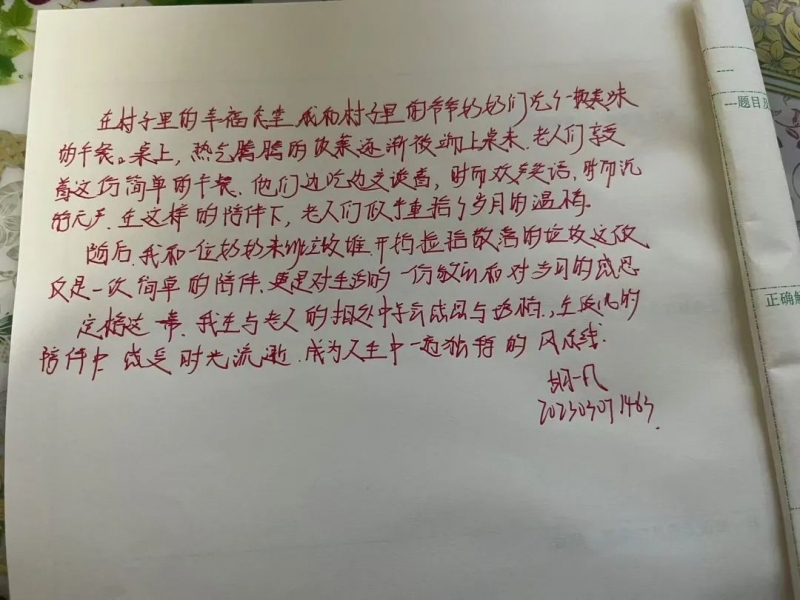 在村子里的幸福食堂 我和村子里的爷爷奶奶们吃个极美味
的午餐。桌上，热气腾腾的饭菜逐渐被端上桌来.老人们享受
着这份简单的午餐.他们边吃边交谈着，时而欢声笑语，时而沉
在这样的陪伴下，老人们似乎重拾了岁月的温柔。
随后.我和一位奶奶来到垃圾堆.开始捡拾散落的垃圾这不仅
仅是一次简单的陪伴.更是对生活的一份敬意和对岁月的感恩
定格这一幕.我在与老人的相处中学会感恩与
陪伴中 感受时光流逝.成为人生中一道独特的风景线.
胡一凡
20230307
---题目及
正确解